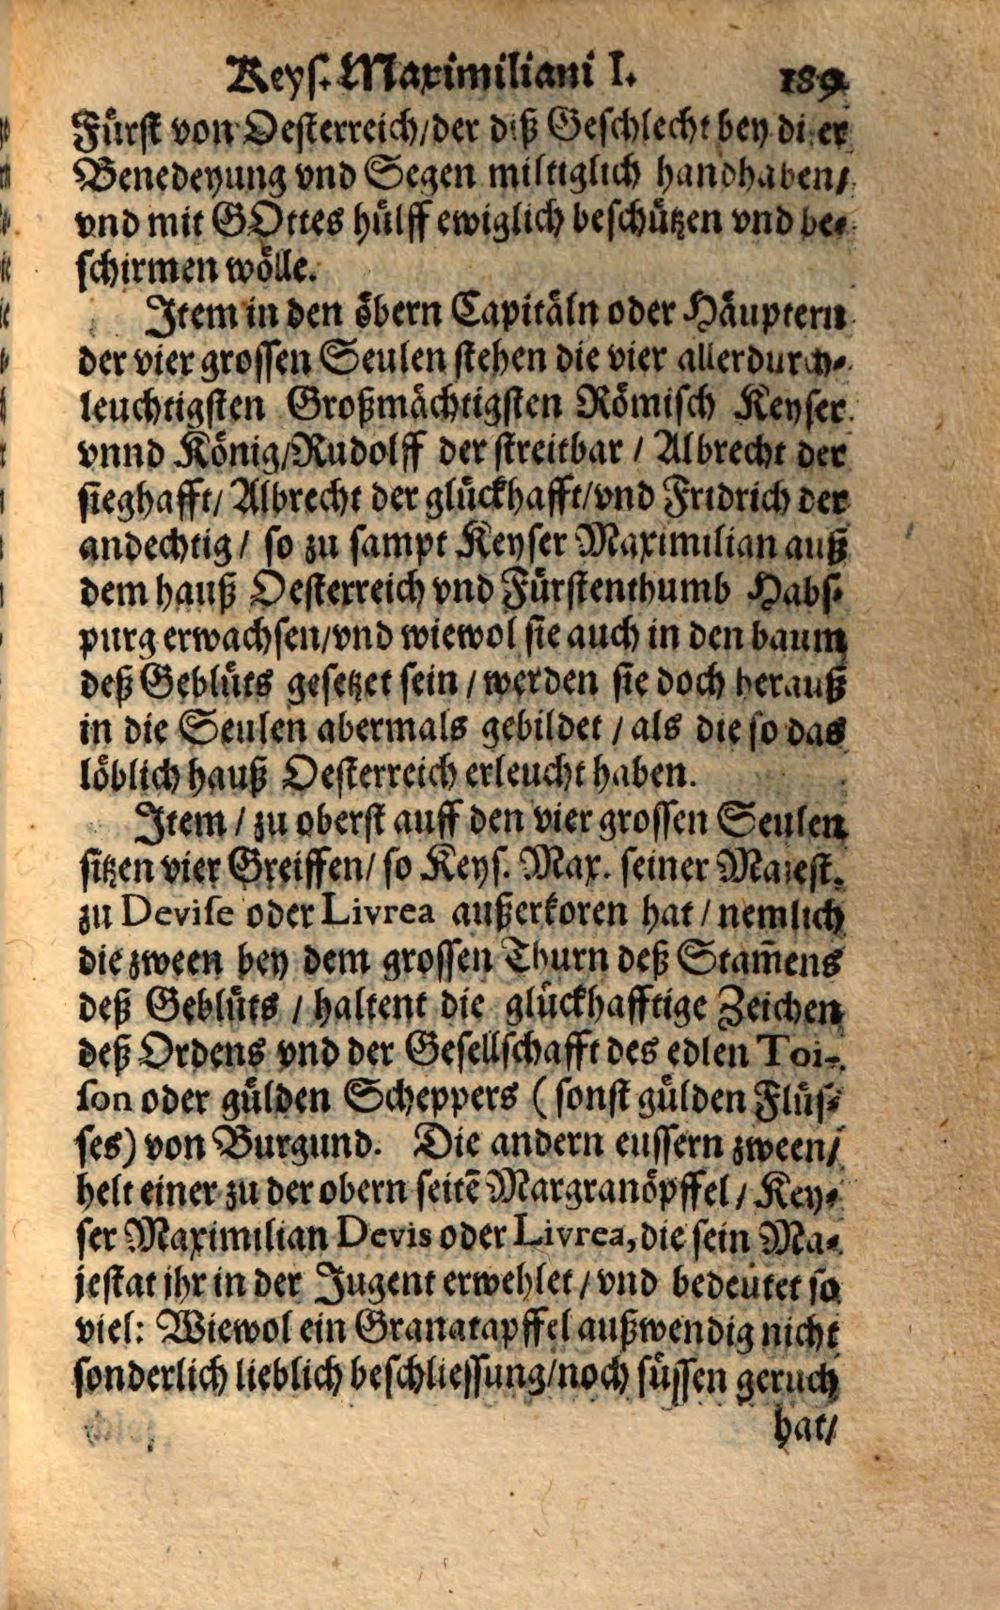 Keys. Maximiliani I. 189
Fürst von Oesterreich/ der diß Geschlecht bey dieser
Benedeyung vnd Segen miltiglich handhaben/
vnd mit GOttes hülff ewiglich beschützen vnd be-
schirmen wölle.
Item in den öbern Capitäln oder Häuptern
der vier grossen Seulen stehen die vier allerdurch-
leuchtigsten Großmächtigsten Römisch Keyser
vnnd König/ Rudolff der streitbar / Albrecht der
sieghafft/ Albrecht der glückhafft/ vnd Fridrich der
andechtig / so zu sampt Keyser Maximilian auß
dem hauß Oesterreich vnd Fürstenthumb Habs-
purg erwachsen/ vnd wiewol sie auch in den baum
deß Geblüts gesetzet sein / werden sie doch herauß
in die Seulen abermals gebildet / als die so das
löblich hauß Oesterreich erleucht haben.
Item / zu oberst auff den vier grossen Seulen
sitzen vier Greiffen/ so Keys. Max. seiner Maiest.
zu Devise oder Livrea außerkoren hat / nemlich
die zween bey dem grossen Thurn deß Stam̃ens
deß Geblüts / haltent die glückhafftige Zeichen
deß Ordens vnd der Gesellschafft des edlen Toi-
son oder gülden Scheppers ( sonst gülden Flüs-
ses) von Burgund. Die andern eussern zween/
helt einer zu der obern seitẽ Margranöpffel / Key-
ser Maximilian Devis oder Livrea, die sein Ma-
jestat jhr in der Jugent erwehlet / vnd bedeutet so
viel: Wiewol ein Granatapffel außwendig nicht
sonderlich lieblich beschliessung/ noch süssen geruch
hat/